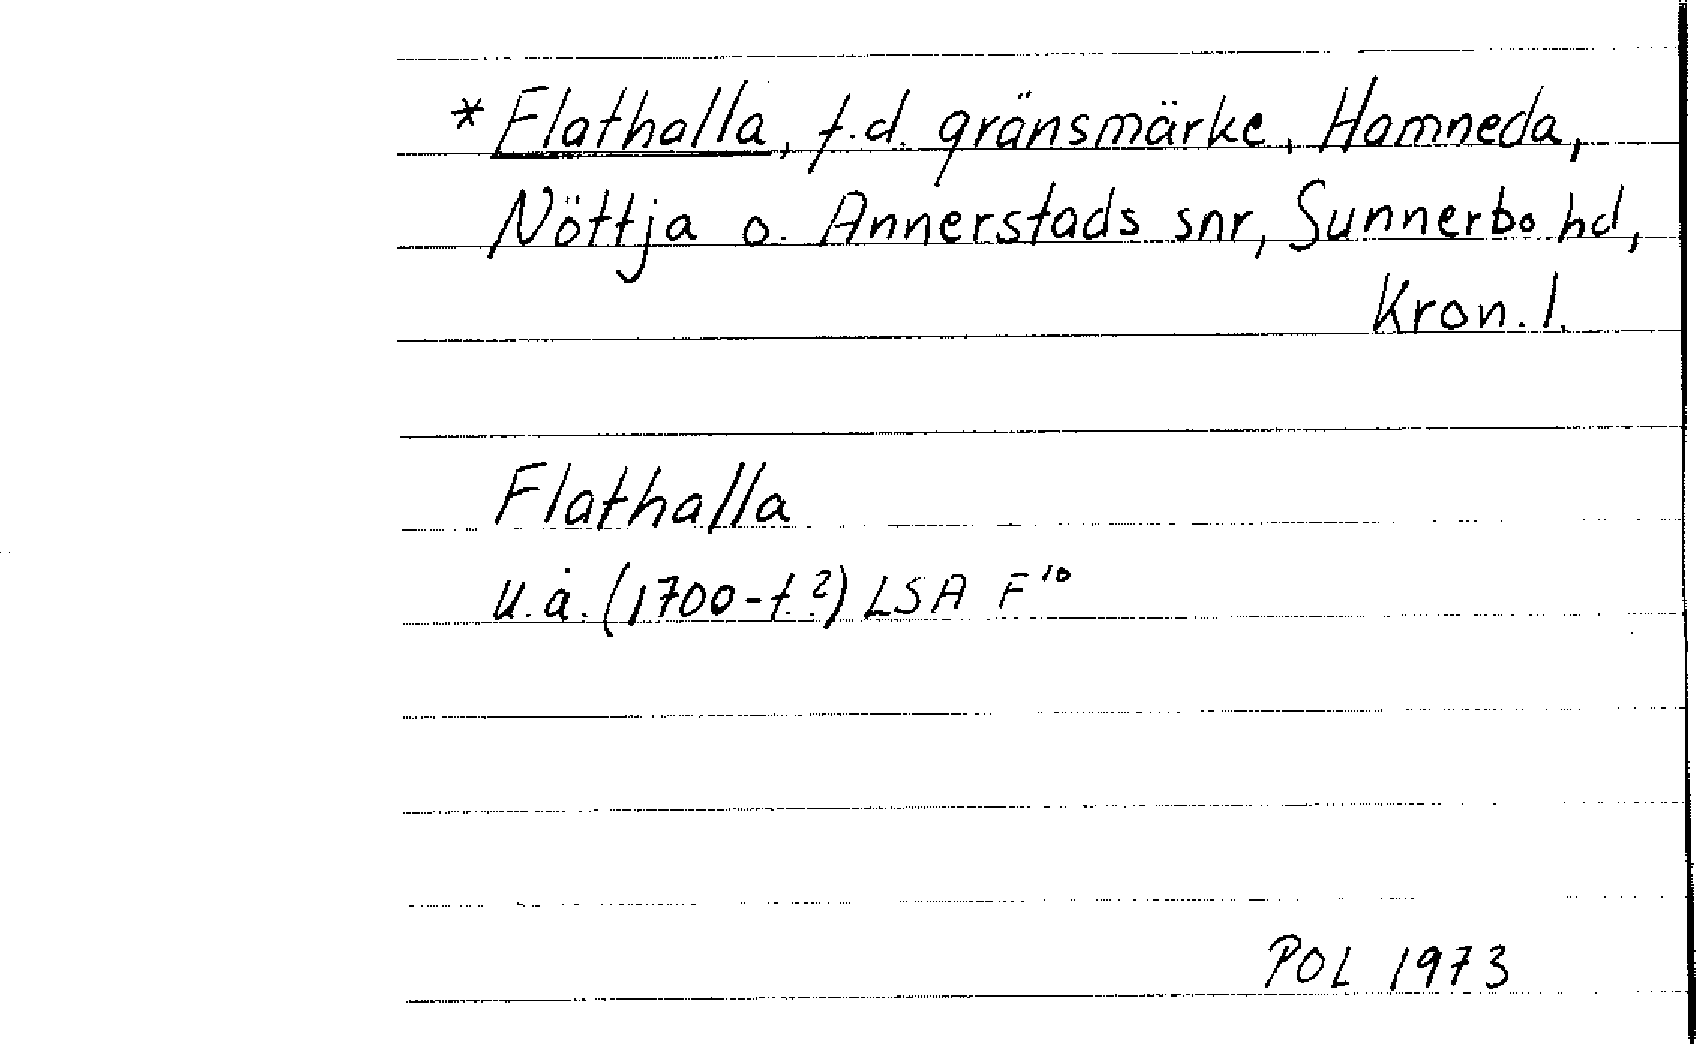 *Flathalla, f.d. gränsmärke, Hamneda,
Nöttja o. Annerstads snr, Sunnerbo hd,
Kron. l.
Flathalla
u.å. (1700-t.?) LSA F¹⁰
POL 1973